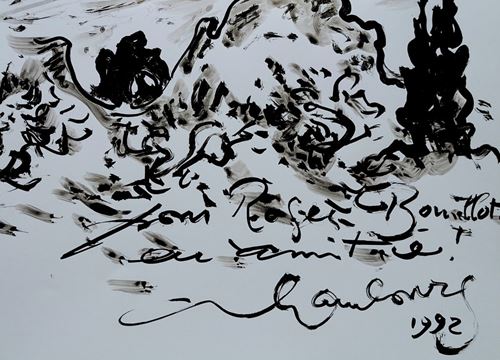 pour Roger Bouillot
en amitié!
Hambourg
1992